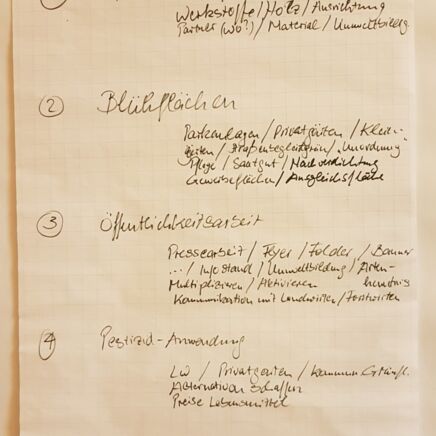 Werkstoffe / Holz / Ausrichtung
Partner (wo?) / Material / Umweltbildg.
2 Blühflächen
Parkanlagen / Privatgärten / Klein-
gärten / Straßenbegleitgrün / "Unordnung"
Pflege / Saatgut / Nachverdichtung
Gewerbeflächen / Ausgleichsfläche
3 Öffentlichkeitsarbeit
Pressearbeit / Flyer / Folder / Banner
... / Infostand / Umweltbildung / Arten-
Multiplizieren / Aktivieren kenntnis
Kommunikation mit Landwirten / Forstwirten
4 Pestizid-Anwendung
LW / Privatgärten / kommun. Grünfl.
Alternativen schaffen
Preise Lebensmittel